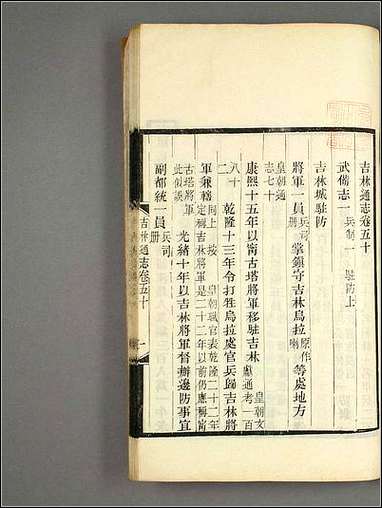 吉林通志卷五十
武備志一 兵制一 駐防上
吉林城駐防
將軍一員 兵司冊 掌鎮守吉林烏拉 原作喇 等處地方
皇朝通志七十
康熙十五年以甯古塔將軍移駐吉林 皇朝文獻通考一百八十二
乾隆十三年令打牲烏拉處官兵歸吉林將軍兼轄 同上 按 皇朝職官表乾隆二十二年定稱吉林將軍是二十二年以前仍應稱甯古塔將軍此似誤
光緒十年以吉林將軍督辦邊防事宜
副都統一員 兵司冊
吉林通志卷五十 一